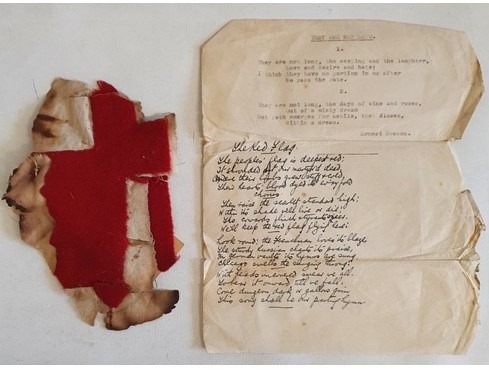 THEY ARE NOT LONG.
1.
They are not long, the weeping and the laughter,
Love and desire and hate;
I think they have no portion in us after
We pass the gate.
2.
They are not long, the days of wine and roses,
Out of a misty dream
Our path emerges for awhile, then closes,
Within a dream.
Ernest Dowson.
The Red Flag.
The peoples' flag is deepest red:
It shrouded oft our martyr'd dead,
And ere their limbs grew stiff & cold,
Their hearts' blood dyed its ev'ry fold
chorus
Then raise the scarlet standard high:
Within its shade we'll live or die,
Tho cowards flinch & traitors sneer,
We'll keep the red flag flying here:
Look round; the Frenchman loves its blaze
The sturdy Russian chants its praise,
In German vaults its hymns are sung
Chicago swells the surging throng:
With heads uncovered swear we all
To bear it onward till we fall.
Come dungeon dark or gallows grim
This song shall be our parting hymn